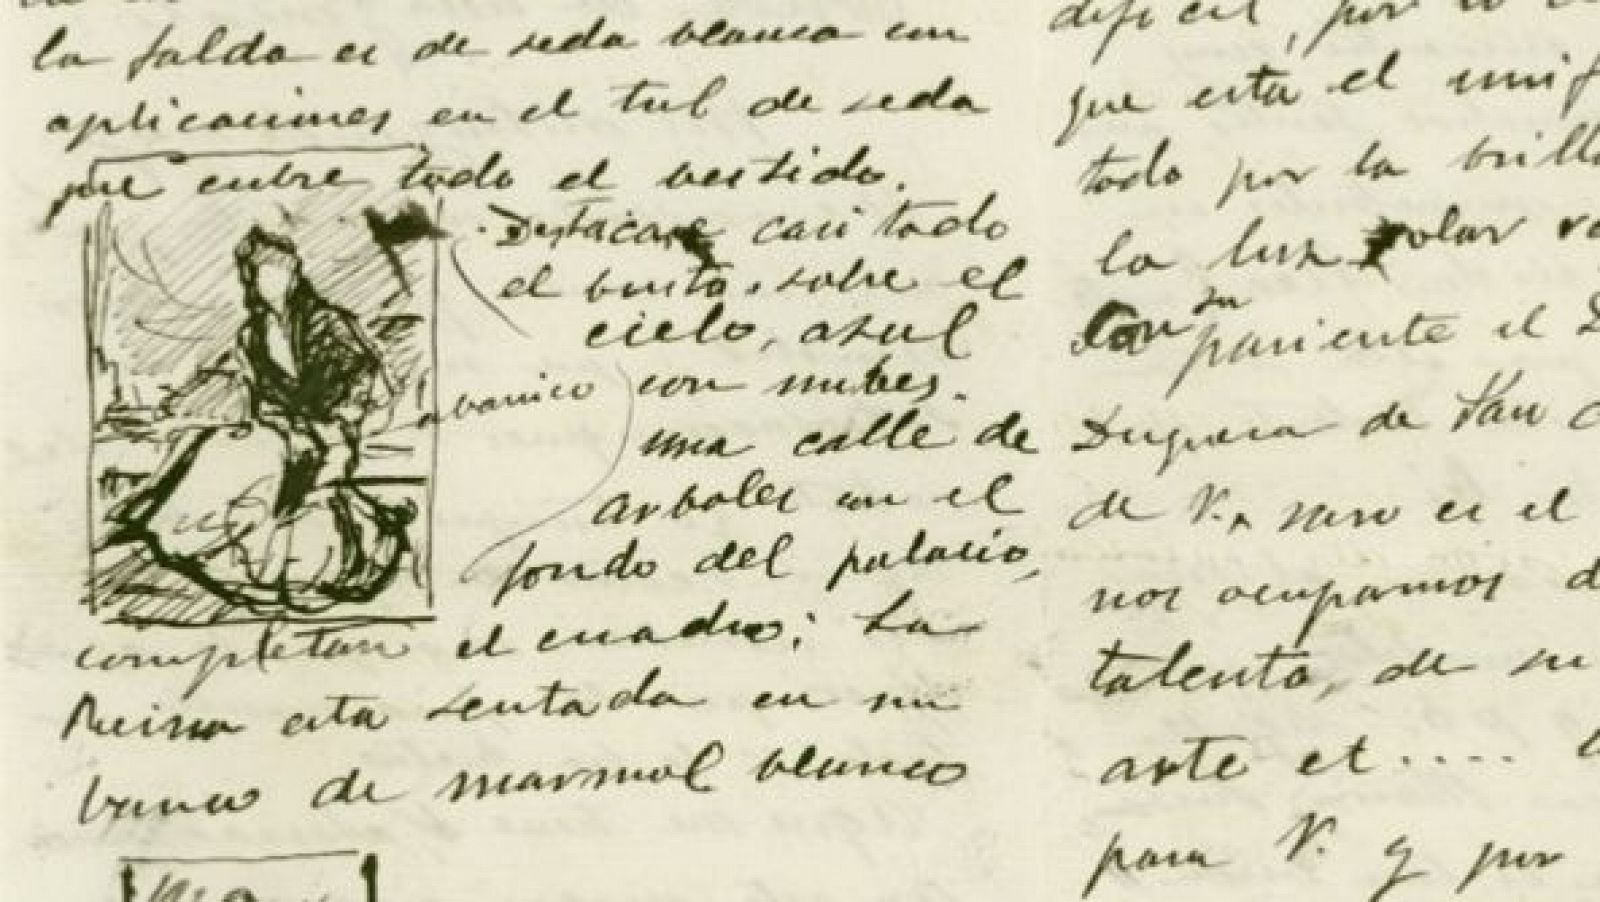 la falda es de seda blanca con
aplicaciones en el tul de seda
que cubre todo el vestido.
Destacase casi todo
el busto, sobre el
cielo, azul
abanico
con nubes.
una calle de
arboles en el
fondo del palacio,
completan el cuadro; La
Reina esta sentada en un
banco de marmol blanco
dificil, por lo
que está el unif
todo por la brill
la luz solar
con su pariente el D
Duquesa de San C
de V. raro es el
nos ocupamos d
talento, de su
arte et....
para V. y por